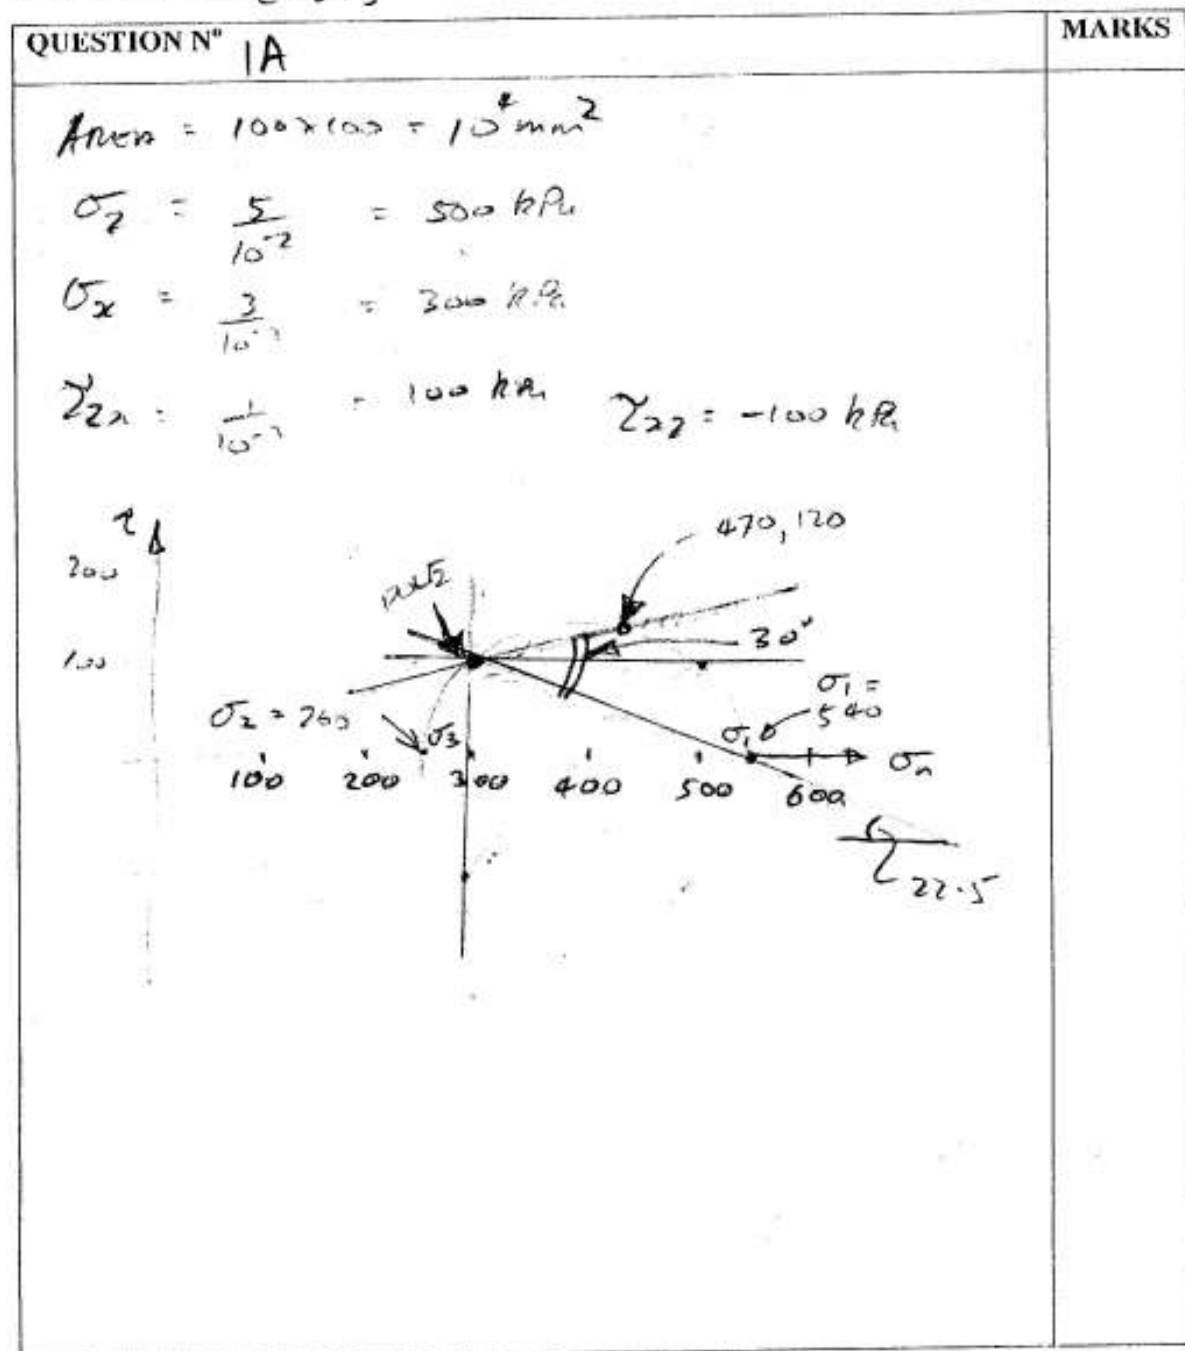 QUESTION Nº 1A
MARKS
AREA = 100x100 = 10⁴ mm²
σz = 5/10⁻² = 500 kPa
σx = 3/10⁻² = 300 kPa
τzx = 1/10⁻² = 100 kPa τxz = -100 kPa
τ
200
100
470, 120
30°
σ1 = 540
σ1
σ3
σn
100 200 300 400 500 600
22.5